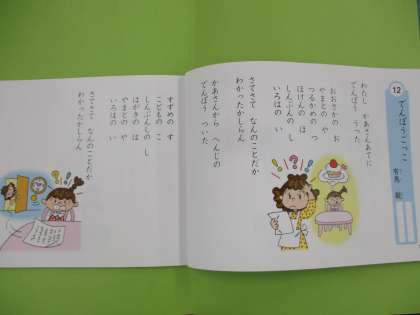 12 でんぽうごっこ
有馬 敲
わたし かあさんあてに
でんぽう うった
おおさかの お
やまとの や
つるかめの つ
ほけんの ほ
しんぶんの し
いろはの い
さてさて なんのことだか
わかったかしらん
かあさんから へんじの
でんぽう ついた
すずめの す
こどもの こ
しんぶんしの し
はがきの は
やまとの や
いろはの い
さてさて なんのことだか
わかったかしらん